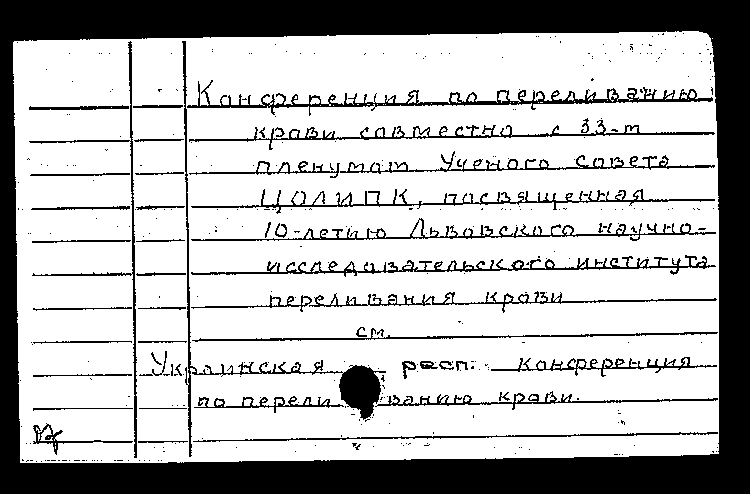 Конференция по переливанию
крови совместно с 33-м
пленумом Ученого совета
ЦОЛИПК, посвященная
10-летию Львовского научно-
исследовательского института
переливания крови
см.
Украинская респ. конференция
по переливанию крови.